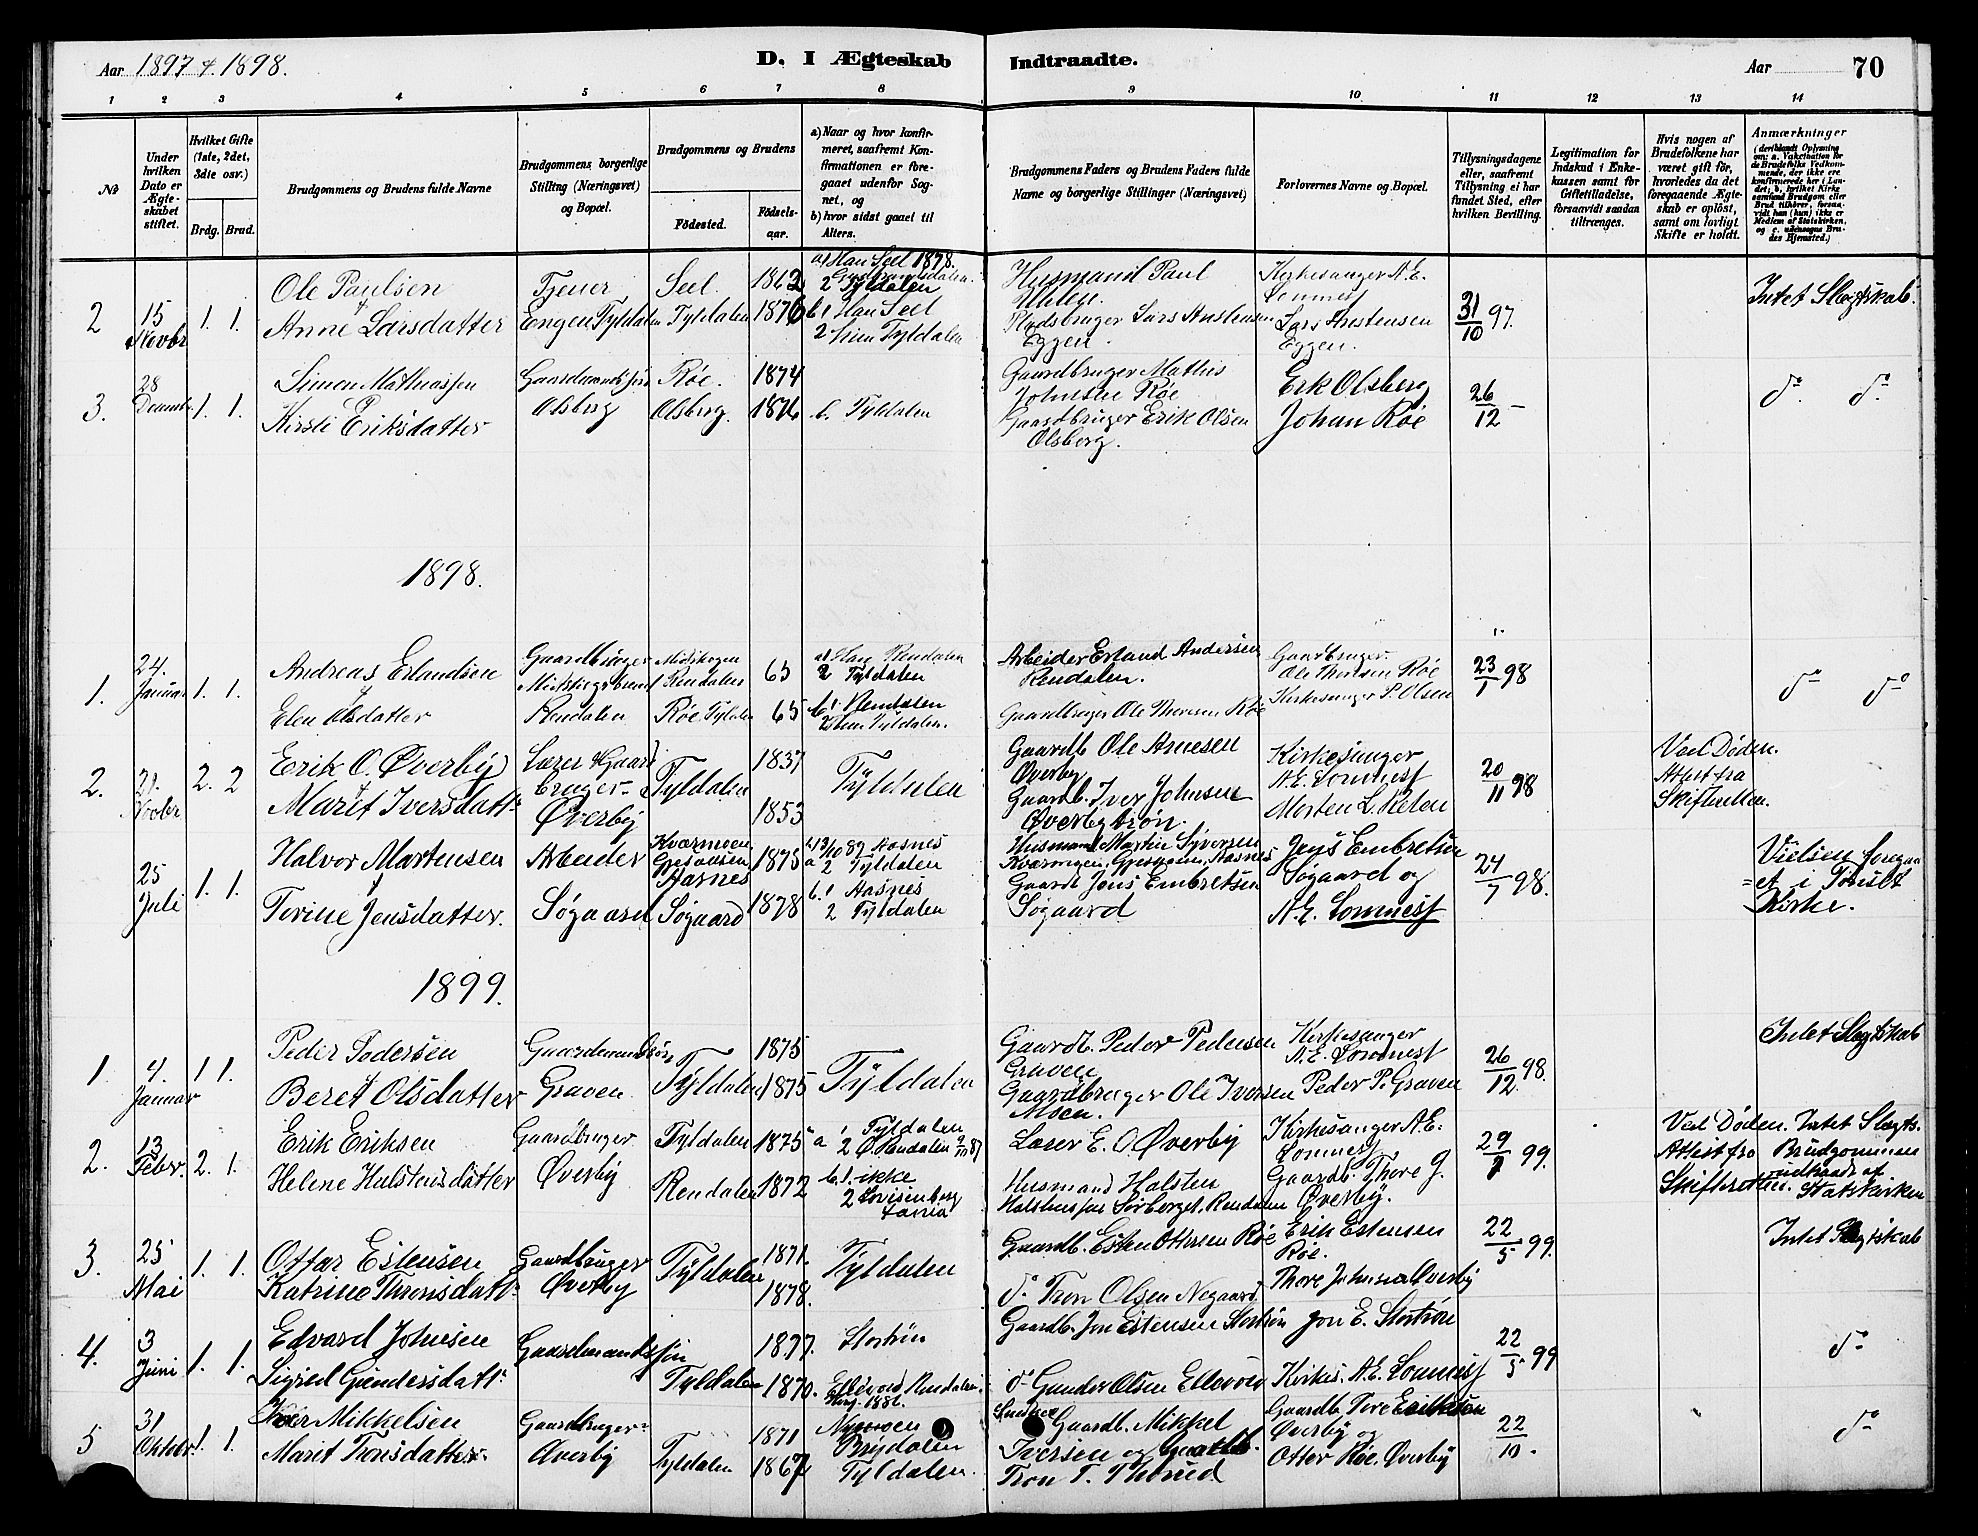 Aar 1897 & 1898.
D. I Ægteskab Indtraadte.
Aar 70
1 2 3 4 5 6 7 8 9 10 11 12 13 14
No
Under hvilken Dato er Ægteskabet stiftet.
Hvilket Gifte (1ste, 2det, 3die osv.)
Brdg. Brud.
Brudgommens og Brudens fulde Navne
Brudgommens borgerlige Stilling (Næringsvei) og Bopæl.
Brudgommens og Brudens
Fødested.
Fødselsaar.
a) Naar og hvor konfirmeret, saafremt Konfirmationen er foregaaet udenfor Sognet, og
b) hvor sidst gaaet til Alters.
Brudgommens Faders og Brudens Faders fulde Navne og borgerlige Stillinger (Næringsvei)
Forlovernes Navne og Bopæl.
Tillysningsdagene eller, saafremt Tillysning ei har fundet Sted, efter hvilken Bevilling.
Legitimation for Indskud i Enkekassen samt for Giftetilladelse, forsaavidt saadan tiltrænges.
Hvis nogen af Brudefolkene har været gift før, hvorledes da det foregaaende Ægteskab er opløst, samt om lovligt Skifte er holdt.
Anmærkninger (deriblandt Oplysning om: a. Vakcination for de Brudefolks Vedkommende, der ikke ere konfirmerede her i Landet; b. hvilket Kirkesamfund Brudgom eller Brud tilhører, forsaavidt han (hun) ikke er Medlem af Statskirken, og c. udensogns Brudes Hjemsted.)
2 15 Novbr 1. 1.
Ole Paulsen
&
Anne Larsdatter
Tjener
Engen Tyldalen
Sel.
Tyldalen
1862
1876
a) Han Sel 1878.
Gudbrandsdalen.
2 Tyldalen
b. 1 Han Sel
2 hun Tyldalen
Husmand Paul
Pladsbruger Lars Austensen
Eggen.
Kirkesanger A. E.
Lomnes
Lars Austensen
Eggen.
31/10 97.
Intet Slegtskab.
3. 28 Decembr 1. 1.
Simen Mathiassen
Kirsti Eriksdatter
Gaardmandssøn
Olsberg
Røe.
Olsberg.
1874
1876
b. Tyldalen
Gaardbruger Mathis
Johnsen Røe
Gaardbruger Erik Olsen
Olsberg.
Erk Olsberg
Johan Røe
26/12 -
do do
1898.
1. 24. Januar 1. 1.
Andreas Erlandsen
&
Elen Olsdatter
Gaardbruger
Rendalen
Rendalen
Røe Tyldal
65
65
a) Han Rendalen
2 Tyldalen
b. 1 Rendalen
2 hun Tyldalen.
Arbeider Erland Andersen
Rendalen.
Gaardbruger Ole Thoresen Røe
Gaardbruger
Ole Thoresen Røe
Kirkesanger P. Olsen
23/1 98
do do
2. 21. Novbr 2. 2
Erik O. Øverby
Marit Iversdatt.
Lærer & Gaard
bruger
Øverby
Tyldalen
1837
1853
Tyldalen
Gaardb. Ole Arnesen
Øverby
Gaardb. Iver Johnsen
Øverbytrøn.
Kirkesanger
A. E. Lomnes
Morten L. Kelen
20/11 98
Ved Døden.
Attest fra
Skifteretten.
25 Juli 1. 1.
Halvor Martensen
&
Terine Jensdatter.
Arbeider
Søgaard
Kværnmoen
Gjesaasen
Aasnes
Søgaard
1875
1878
a 1 13/10 89 Aasnes
2 Tyldalen
b. 1 Aasnes
2 Tyldalen
Husmand Martin Syversen
Kværnmoen, Gjesaasen, Aasnes
Gaardb. Jens Embretsen
Søgaard
Jens Embretsen
Søgaard og
A. E. Lomnes
24/7 98.
Vielsen foregaa
=et i Tønset
Kirke.
1899.
1. 4. Januar 1 1.
Peder Pedersen
&
Beret Olsdatter
Gaardmandssøn
Graven
Tyldalen
1875
1875
Tyldalen
Gaardb. Peder Pedersen
Graven
Gaardbruger Ole Iversen
Moen.
Kirkesanger
A. E. Lomnes
Peder P. Graven
26/12 98.
Intet Slegtskab
2. 13 Febr. 2. 1.
Erik Eriksen
Helene Halstensdatter
Gaardbruger
Øverby
Tyldalen
Rendalen
1875
1872
a 1 Tyldalen
2 Ø. Rendalen 9/10 87
b. 1. ikke
2
Lærer E. O. Øverby
Husmand Halsten
Halstensen Sørberget, Rendalen
Kirkesanger A. E.
Lomnes
Gaardb. Thore J.
Øverby.
29/1 99.
Ved Døden.
Attest fra
Skifteretten.
Intet Slegts.
Brudgommen
udtraadt af
Statskirken
3. 25 Mai 1. 1.
Ottar Estensen
Katrine Thronsdatt.
Gaardbruger
Øverby
Tyldalen
1871.
1878.
Tyldalen
Gaardb. Esten Ottersen Røe
do Tron Olsen Negaard
Erik Estensen
Røe.
Thore Johnsen Øverby
22/5 99.
Intet Slegtskab
4. 3 Juni 1. 1.
Edvard Johnsen
Sigrid Gundersdatt.
Gaardmandssøn
Tyldalen
1877.
1870.
Stortrøn
Ellevold, Rendalen.
Gaardb. Jon Estensen Stortrøn
do Gunder Olsen Ellevold
Jon E. Stortrøn
Kirkes. A. E. Lomnes
22/5 99
do
5 31 Oktobr 1. 1.
Iver Mikkelsen
Marit Tronsdatter.
Gaardbruger
Øverby
Tyldalen
1871
1867
Brydalen
Tyldalen.
Gaardb. Mikkel
Iversen og Gaardb.
Tron T.
Gaardb. Tore Eriksen
Øverby og
Otter Røe, Øverby
22/10.
do